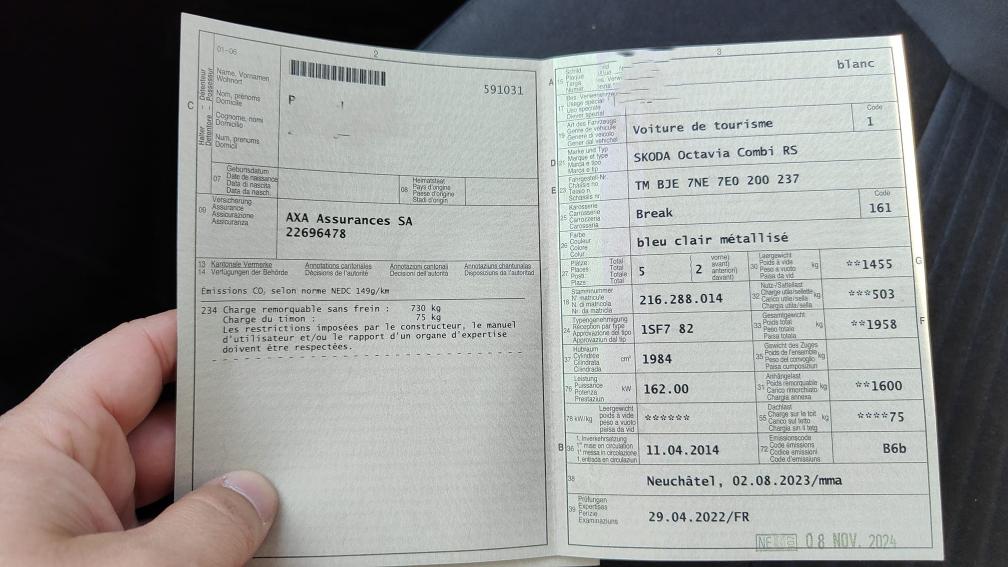 01-06
2
591031
C
Halter - Détenteur
Detentore - Possessur
Name, Vornamen
Wohnort
Nom, prénoms
Domicile
Cognome, nomi
Domicilio
Num, prenoms
Domicil
P
07
Geburtsdatum
Date de naissance
Data di nascita
Data da nasch.
08
Heimatstaat
Pays d'origine
Paese d'origine
Stadi d'origin
09
Versicherung
Assurance
Assicurazione
Assicuranza
AXA Assurances SA
22696478
13 Kantonale Vermerke Annotations cantonales Annotazioni cantonali Annotaziuns chantunalas
14 Verfügungen der Behörde Décisions de l'autorité Decisioni dell'autorità Disposiziuns da l'autoritad
Emissions CO₂ selon norme NEDC 149g/km
234 Charge remorquable sans frein : 730 kg
Charge du timon : 75 kg
Les restrictions imposées par le constructeur, le manuel
d'utilisateur et/ou le rapport d'un organe d'expertise
doivent être respectées.
3
A 15
Schild
Plaque
Targa
Numer
blanc
17
Usage spécial
Uso speciale
Diever spezial
19
Art des Fahrzeugs
Genre de véhicule
Genere di veicolo
Gener dal vehichel
Voiture de tourisme
Code
1
D 21
Marke und Typ
Marque et type
Marca e tipo
Marca e tip
SKODA Octavia Combi RS
E 23
Fahrgestell-Nr.
Châssis no
Telaio n.
Schassis nr.
TM BJE 7NE 7E0 200 237
25
Karosserie
Carrosserie
Carrozzeria
Carossaria
Break
Code
161
26
Farbe
Couleur
Colore
Colur
bleu clair métallisé
27
Plätze: Total
Places: Total
Posti: Totale
Plazs: Total
5
2
vorne)
avant)
anteriori)
davant)
30
Leergewicht
Poids à vide
Peso a vuoto
Paisa da vid
kg
**1455
G
18
Stammnummer
N° matricule
N. di matricola
Nr. da matricla
216.288.014
32
Nutz-/Sattellast
Charge utile/sellette
Carico utile/sella
Chargia utila/sella
kg
***503
24
Typengenehmigung
Réception par type
Approvazione del tipo
Approvaziun dal tip
1SF7 82
33
Gesamtgewicht
Poids total
Peso totale
Paisa totala
kg
**1958
F
37
Hubraum
Cylindrée
Cilindrata
Cilindrada
cm³
1984
35
Gewicht des Zuges
Poids de l'ensemble
Peso del convoglio
Paisa cumposiziun
kg
76
Leistung
Puissance
Potenza
Prestaziun
kW
162.00
31
Anhängelast
Poids remorquable
Carico rimorchiato
Chargia annexa
kg
**1600
78 kW/kg
Leergewicht
poids à vide
peso a vuoto
paisa da vid
******
55
Dachlast
Charge sur le toit
Carico sul tetto
Chargia sin il tetg
kg
****75
B 36
1. Inverkehrsetzung
1re mise en circulation
1a messa in circolazione
1. entrada en circulaziun
11.04.2014
72
Emissionscode
Code émissions
Codice emissioni
Code d'emissiuns
B6b
38
Neuchâtel, 02.08.2023/mma
39
Prüfungen
Expertises
Perizie
Examinaziuns
29.04.2022/FR
NE 08 NOV. 2024